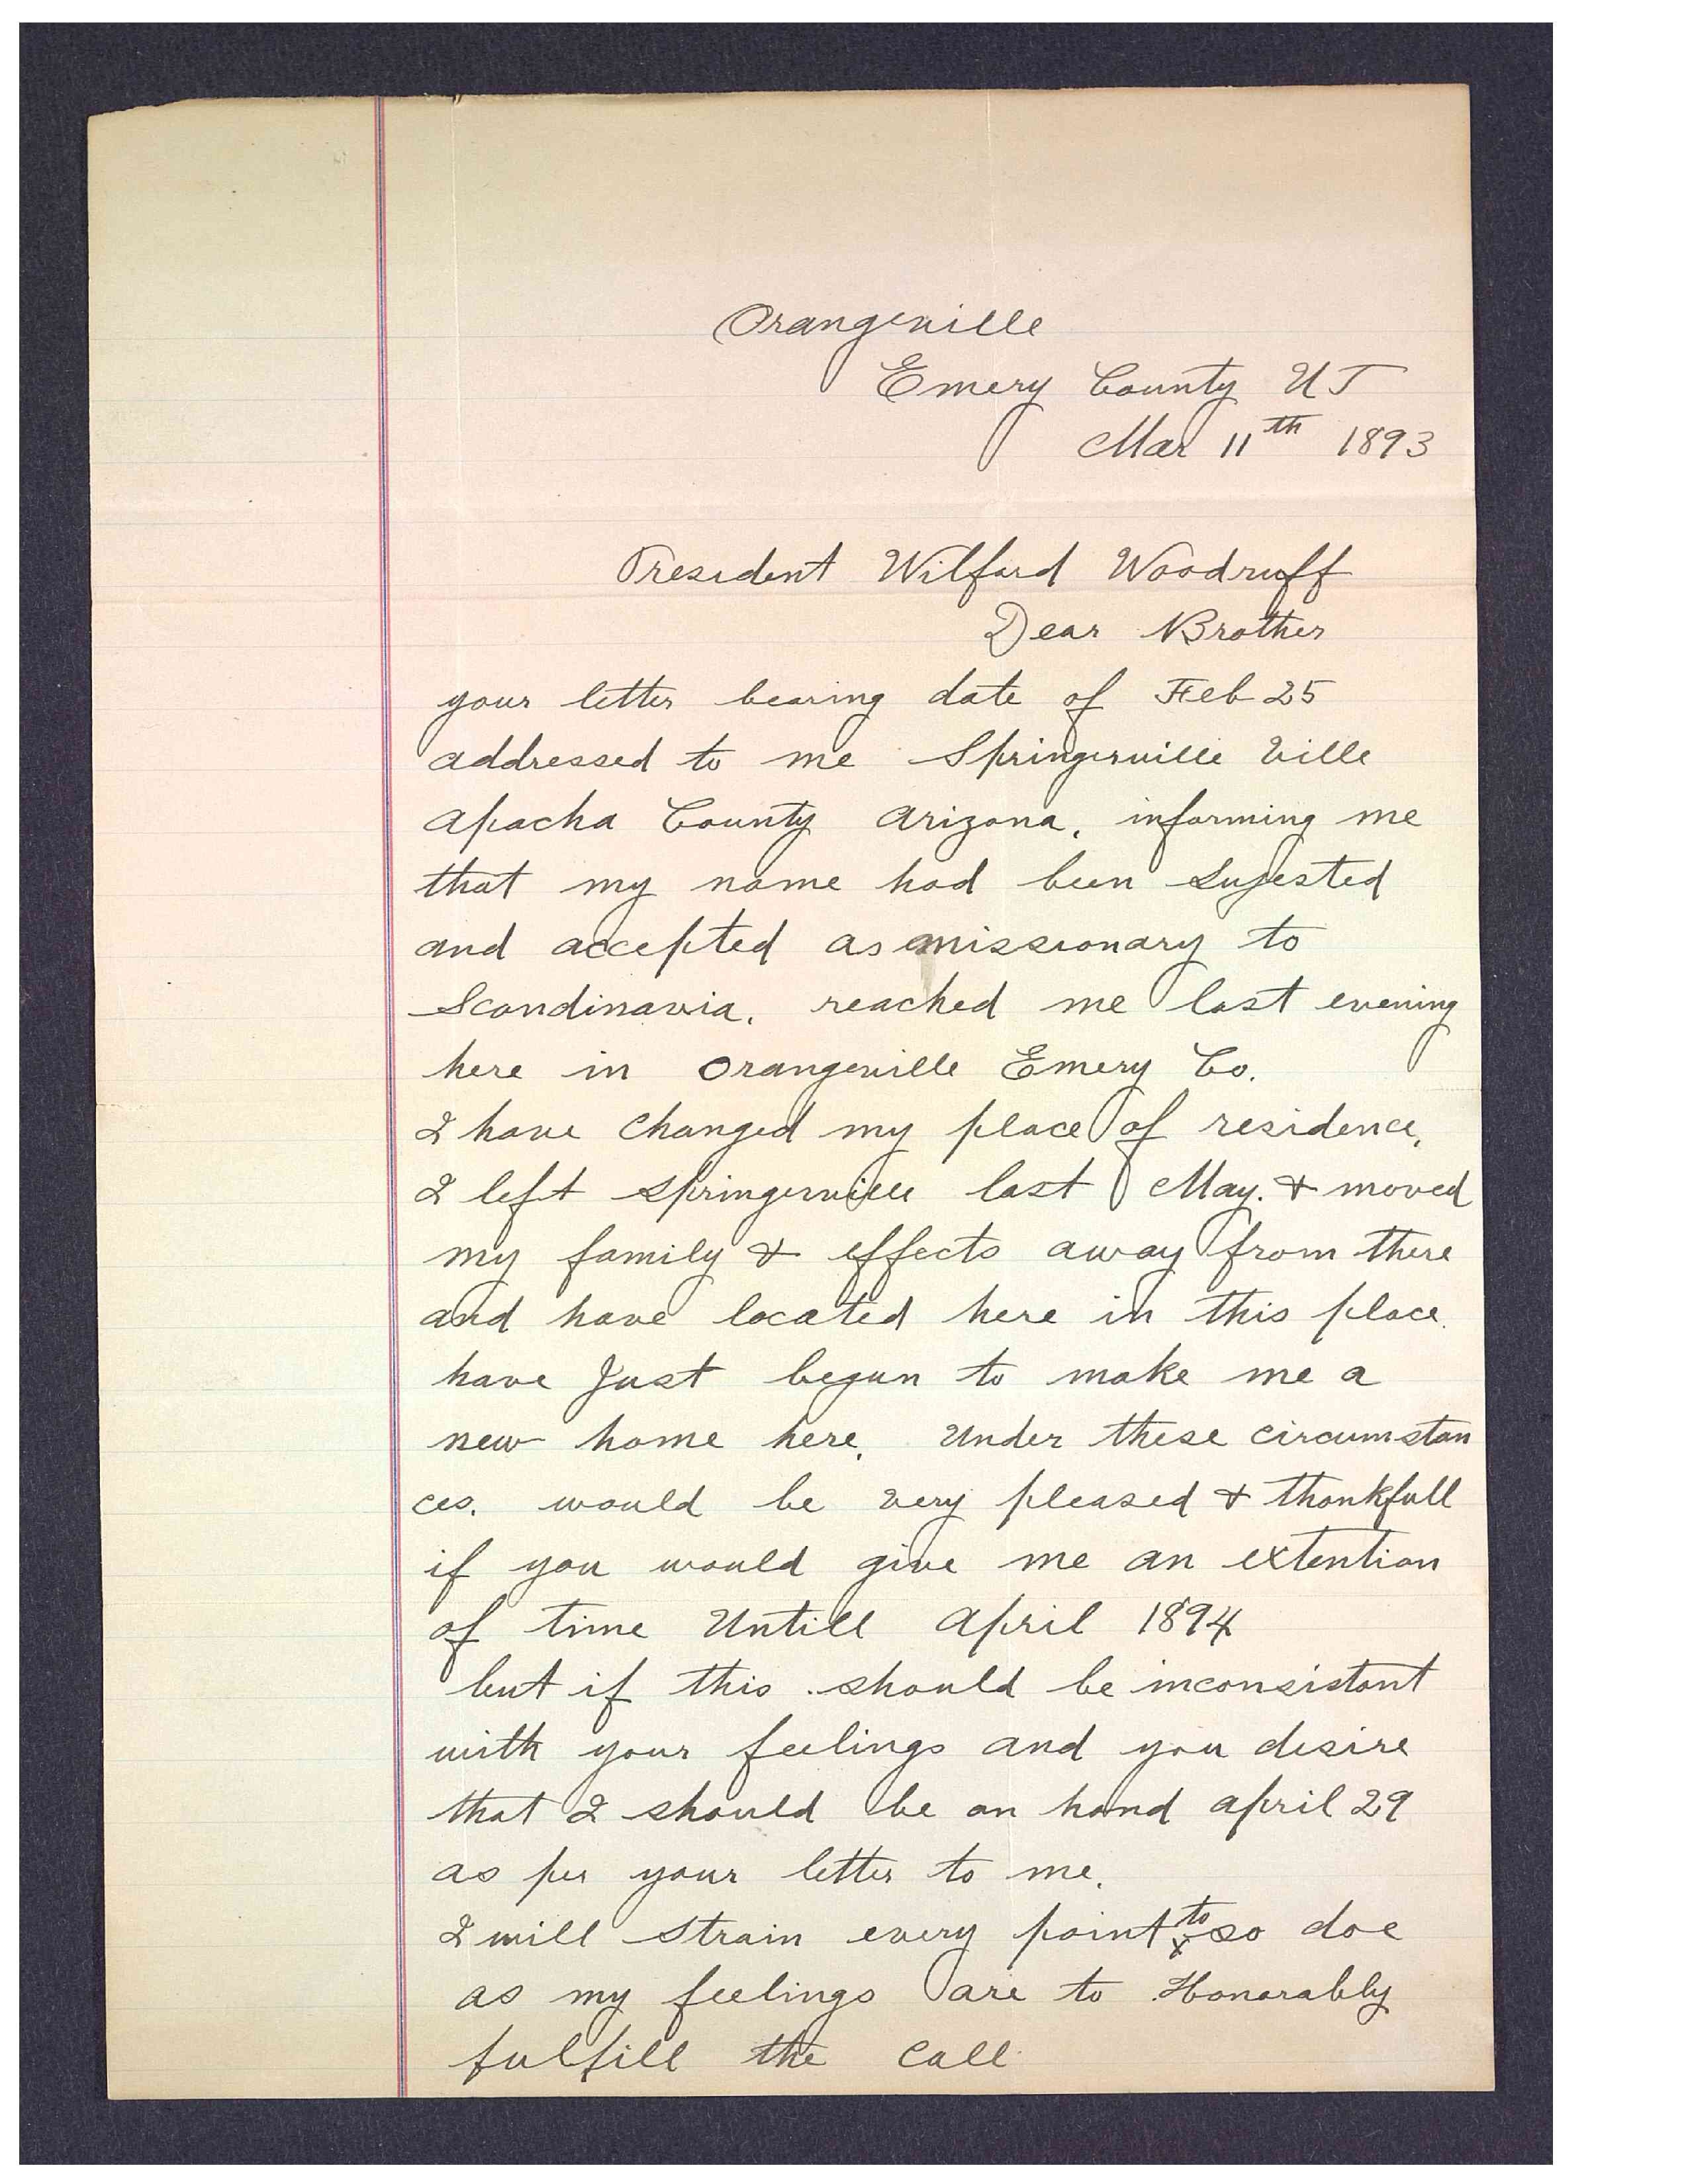 Orangeville
Emery County UT
Mar 11th 1893
President Wilford Woodruff
Dear Brother
your letter bearing date of Feb 25
addressed to me Springerville ville
Apacha County Arizona, informing me
that my name had been sujested
and accepted as a missionary to
Scandinavia, reached me last evening
here in Orangeville Emery Co.
I have changed my place of residence,
I left Springerville last May. & moved
my family & effects away from there
and have located here in this place.
have Just begun to make me a
new home here, Under these circumstan
ces. would be very pleased & thankfull
if you would give me an extention
of time Untill April 1894
but if this should be inconsistant
with your feelings and you desire
that I should be on hand april 29
as per your letter to me,
I will strain every point to so doe
as my feelings are to Honorably
fulfill the Call